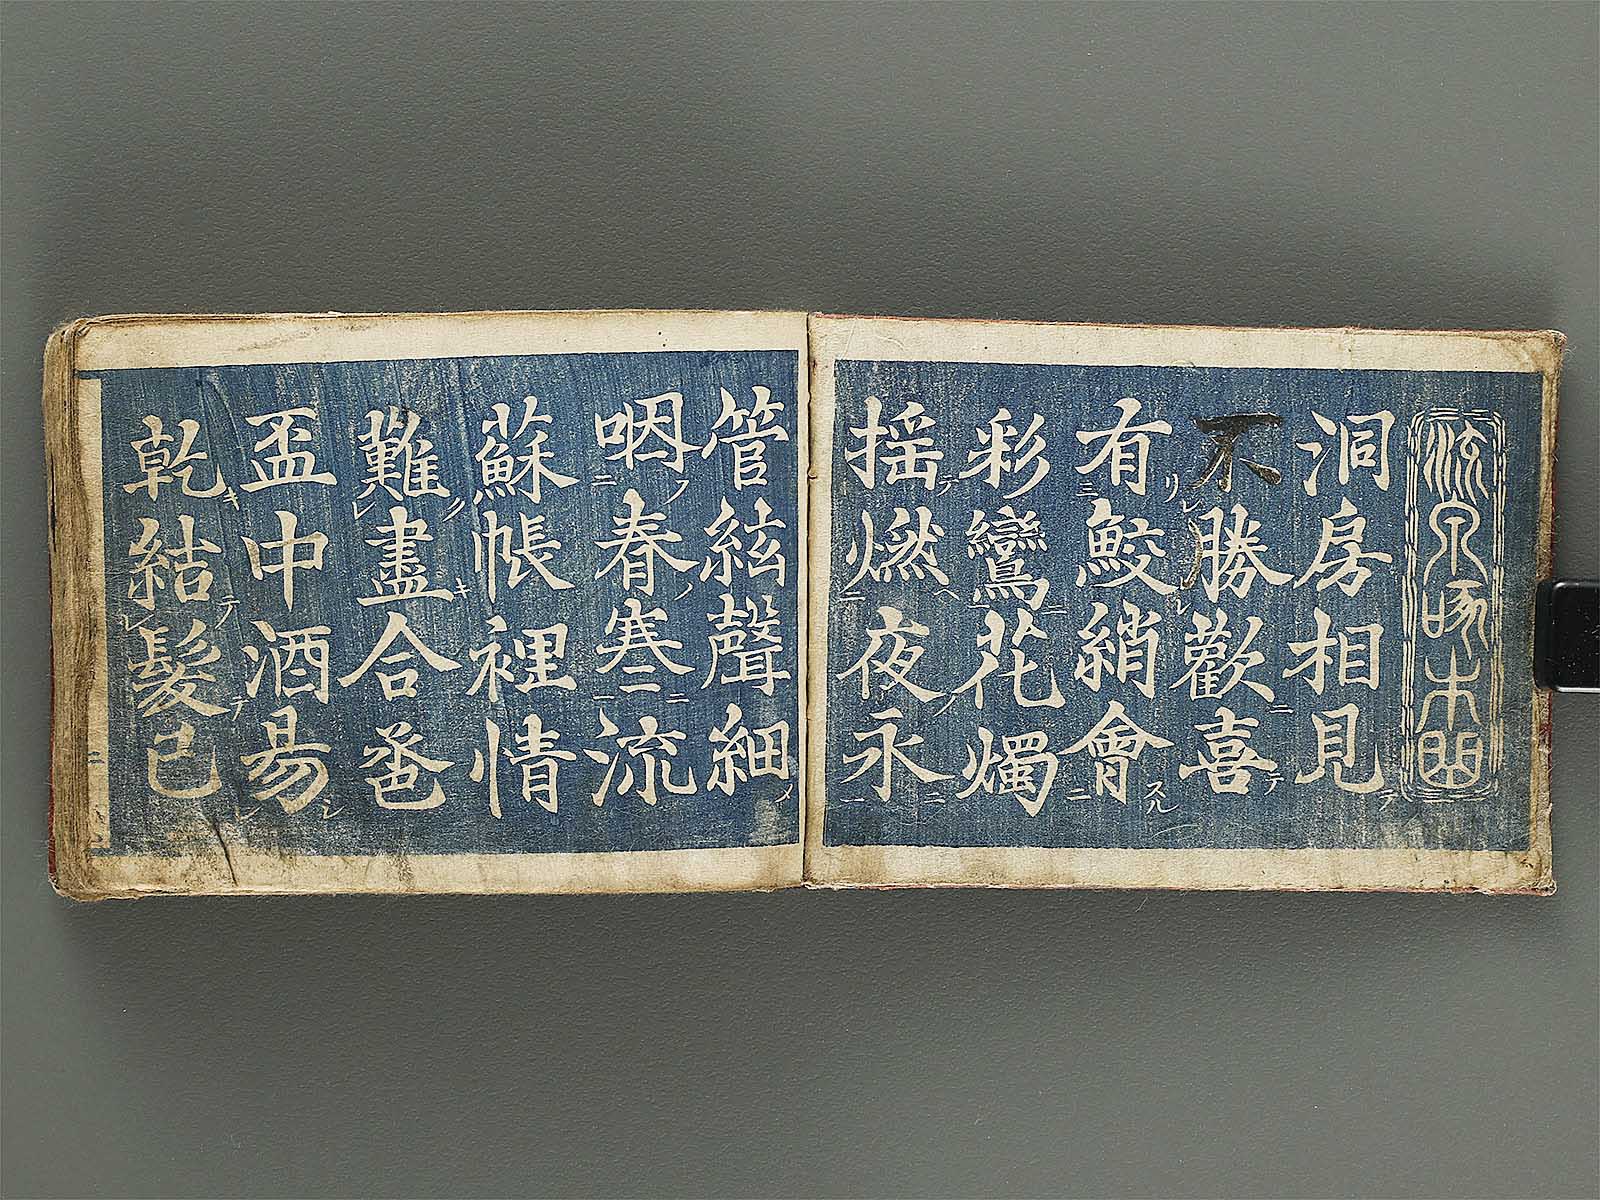 洞房相見
不勝歡喜
有鮫綃會
彩鸞花燭
揺燃夜永
管絃聲細
咽春寒流
蘇帳裡情
難盡合巹
盃中酒易
乾結髮已